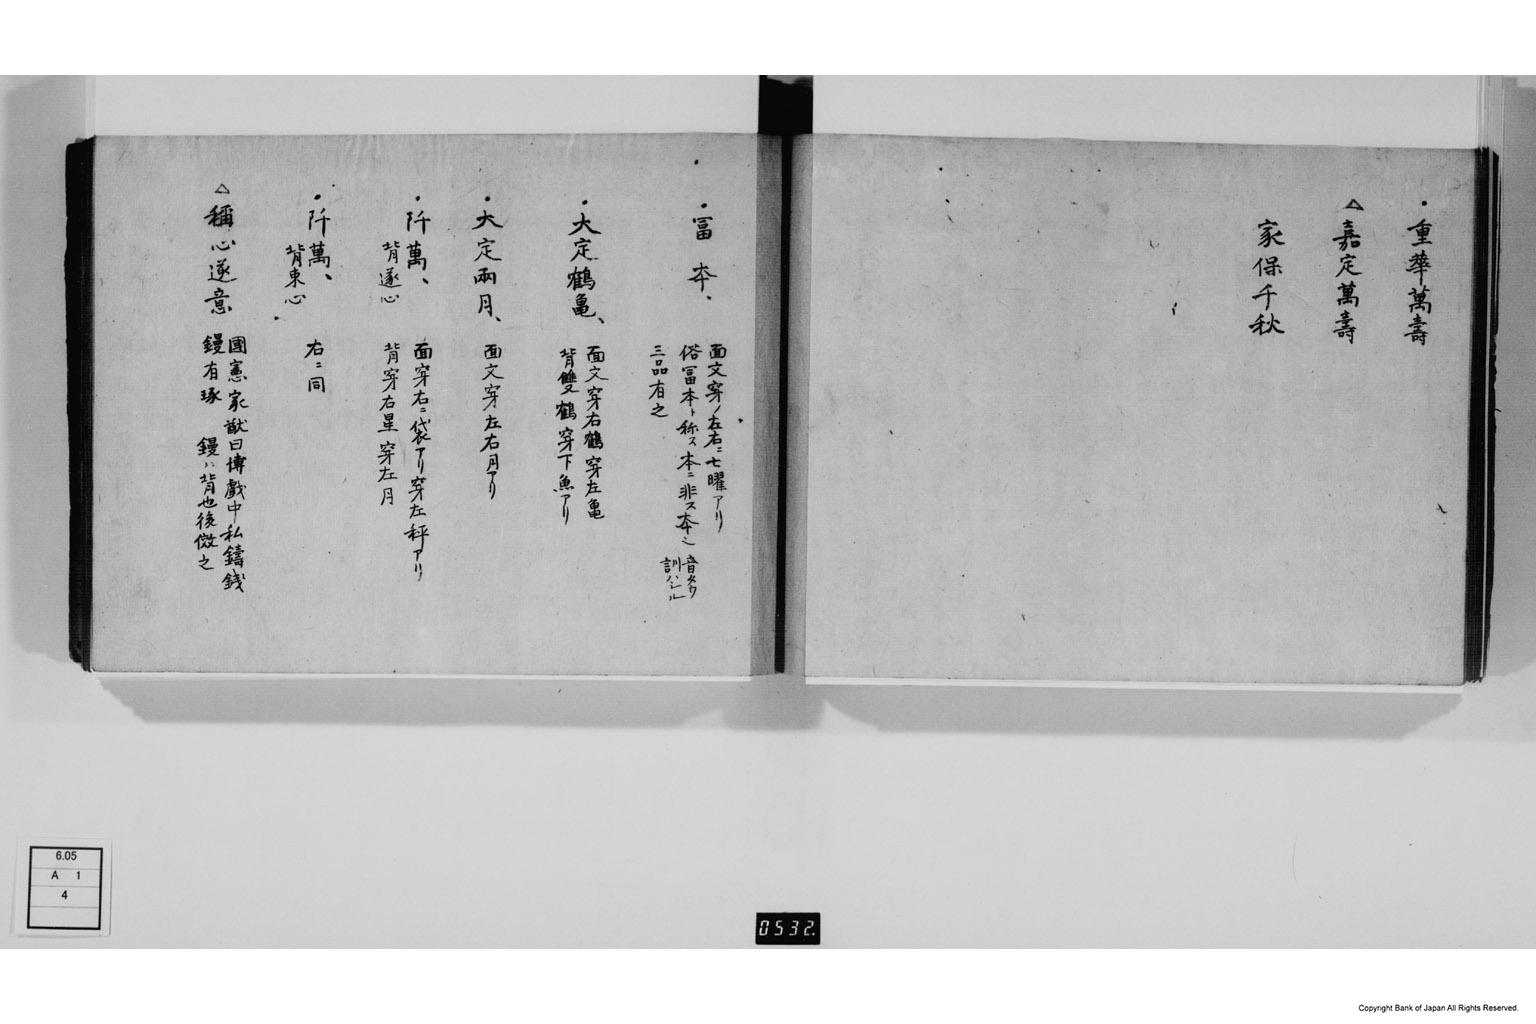 ・重華萬壽
△嘉定萬壽
家保千秋
・冨夲、
面文穿ノ左右ニ七曜アリ
俗冨本ト称ス本ニ非ス夲ニ
音タウ
訓ハシル
三品有之
・大定鶴亀、
面文穿右鶴穿左亀
背雙鶴穿下魚アリ
・大定兩月、
面文穿左右月アリ
・阡萬、
背遂心
面穿右ニ袋アリ穿左秤アリ
背穿右星穿左月
・阡萬、
背東心
右ニ同
△稱心遂意
國憲家猷曰博戯中私鑄錢
鏝有琢 鏝ハ背也後傚之
6.05
A 1
4
0532.
Copyright Bank of Japan All Rights Reserved.